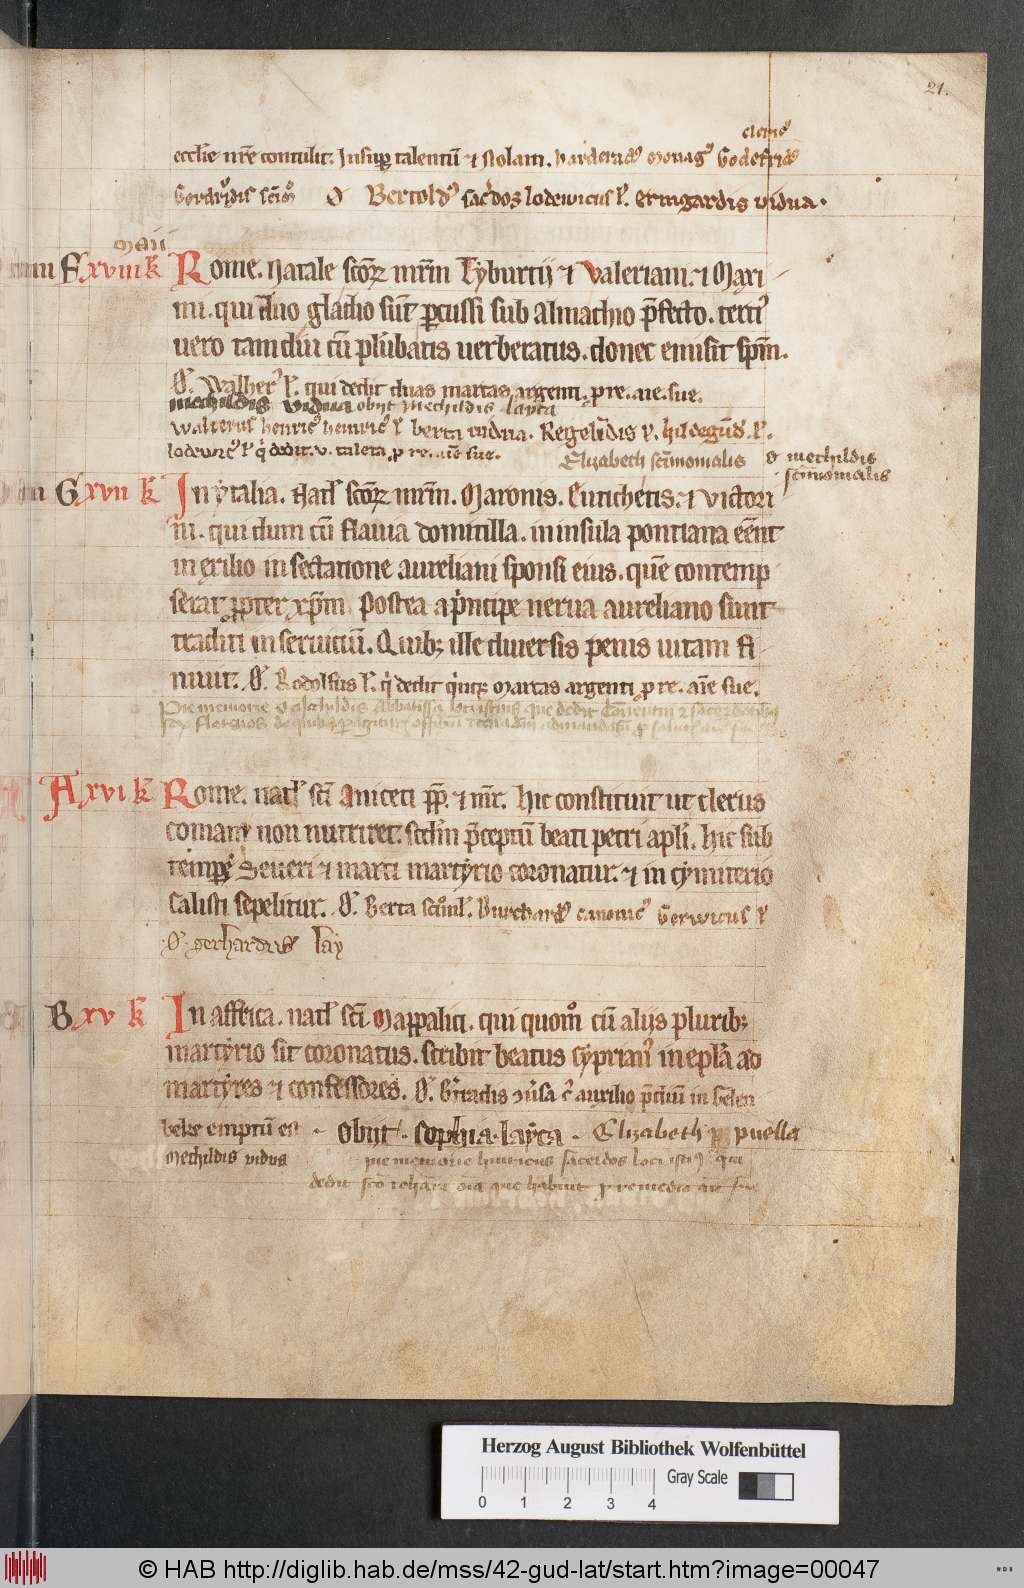 21.
cleric᷒
eccl̄ie nr̄e contulit. Insup̱ talentū ⁊ Nolam. Godefrid᷒
Bertold᷒ sac̄dos lodewicus l̄. ermgardis vidua.
maii
F xviii k̄ Rome. Natale scōꝝ mr̄m Tyburtii ⁊ Valeriani. ⁊ Maxi
mi. qui duo gladio sūt ꝑcussi sub Almachio p̄fecto. terti᷒
uero tam diu cū plūbatis uerberatus. donec emisit spm̄.
O᷒. Walher᷒ l̄. qui dedit duas marcas argenti. ꝓ re. an̄e. sue.
mechildis vidua obiit Mechildis layca
walterus henric᷒ heinric᷒ l̄ berta uidua. Regelīdis l̄. hildegūd᷒. l̄.
lodewic᷒ l̄ q̄ dedit. v. taleta. ꝓ re. aīe sue.
Elizabeth scīmonialis O mechildis
scīmonialis
G xvii k̄ In ytalia. Natł scōꝝ mr̄m. Maronis. Eutichetis. ⁊ victori
ni. qui dum cū flauia domitilla. in insula pontiana eēnt
in exilio in sectatione aureliani sponsi eius. quē contemp
serat ꝓpter xp̄m. Postea a p̄ncipe nerua aureliano sunt
traditi in seruitiū. Quib; ille diuersis penis uitam fi
niuit. O᷒. Rodolfus l̄. q̄ dedit q̄nq; marcas argenti ꝓ re. aīe sue.
Pie memorie O mechildis Abbatissa loci istius que dedit
A xvi k̄ Rome. natł scī Aniceti pp̄. ⁊ mr̄. hic constituit ut clerus
comam non nutriret. scdm̄ p̄ceptū beati petri apłi. hic sub
tempe᷒ Seueri ⁊ marci martyrio coronatur. ⁊ in cymiterio
Calisti sepelitur. O᷒. Berta Burchard᷒ canonic᷒ Gerwicus l̄
O᷒. gerhardus lay
B xv k̄ In affrica. natł scī Mappalici. qui quom̄ cū aliis plurib;
martyrio sit coronatus. scribit beatus cyprian᷒ in epl̄a ad
martyres ⁊ confessores. O᷒.
emptū est obijt. sophia. layca. Elizabeth puella
Mechildis vidua pie memorie hinricus sacerdos loci isti᷒ qui
dedit
Herzog August Bibliothek Wolfenbüttel
Gray Scale
0 1 2 3 4
© HAB http://diglib.hab.de/mss/42-gud-lat/start.htm?image=00047